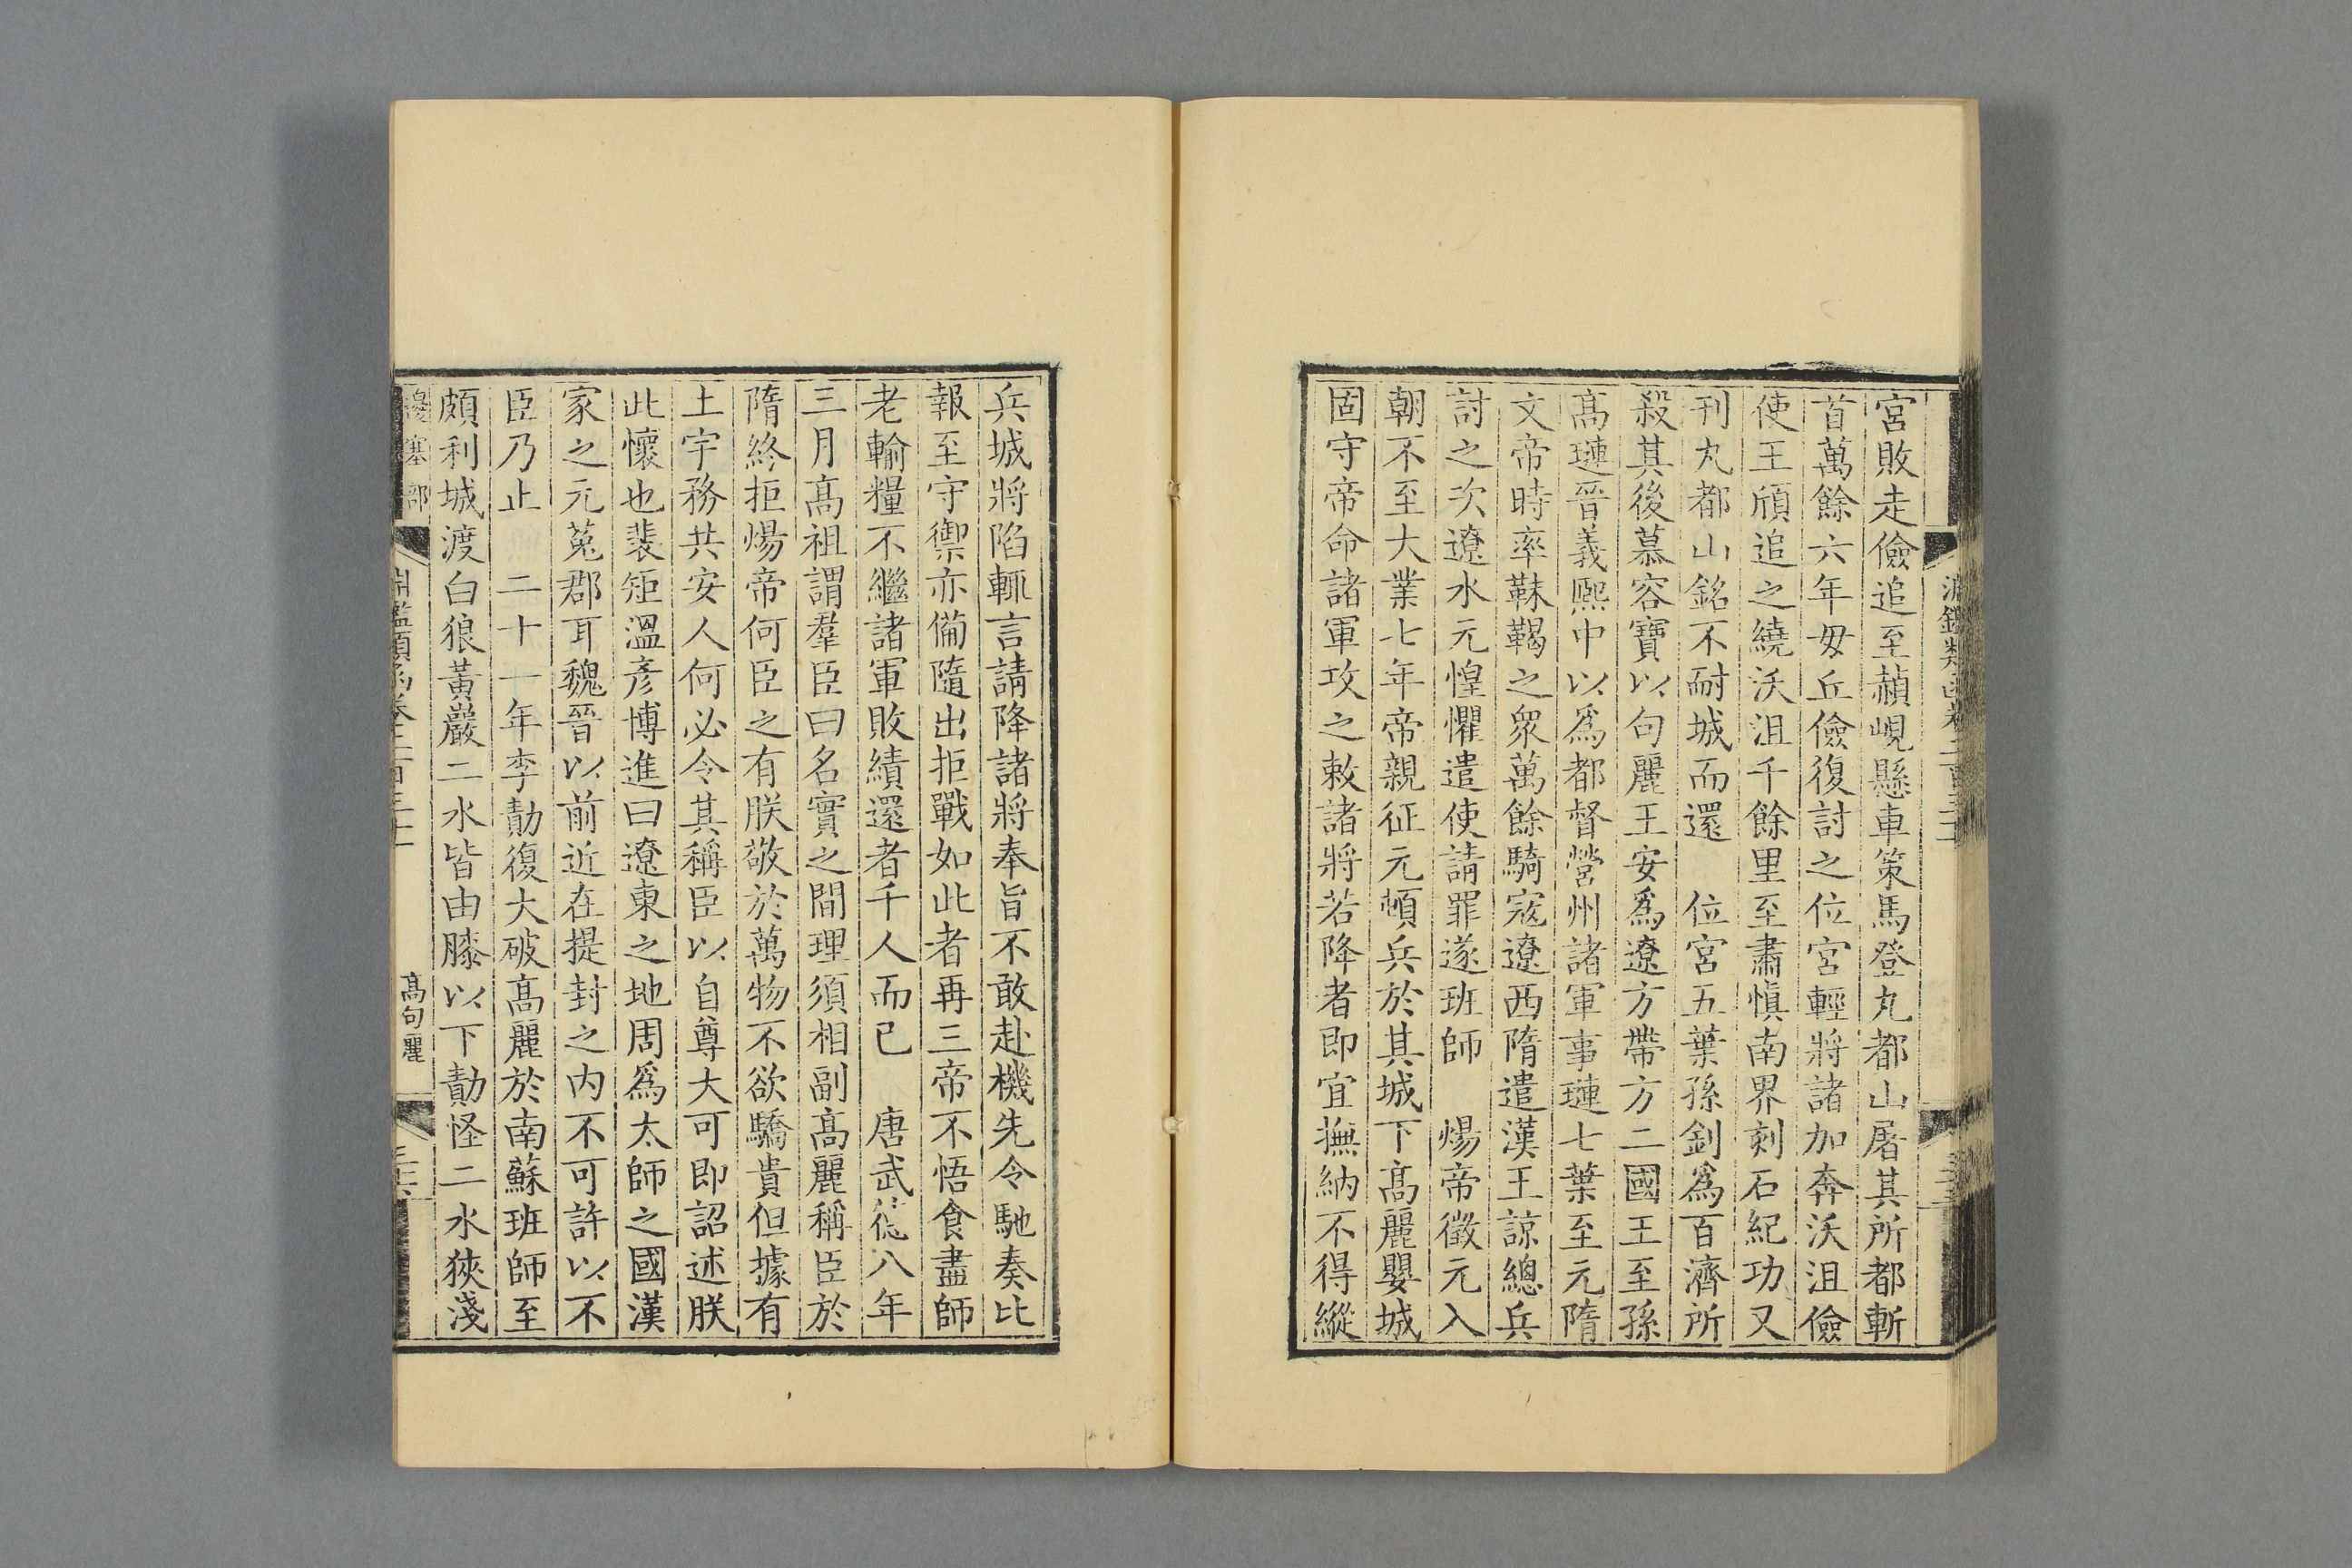 宮敗走儉追至赬峴懸車策馬登丸都山屠其所都斬
首萬餘六年毋丘儉復討之位宮輕將諸加奔沃沮儉
使王頎追之繞沃沮千餘里至肅慎南界刻石紀功又
刊丸都山銘不耐城而還　位宮五葉孫釗爲百濟所
殺其後慕容寶以句麗王安爲遼方帶方二國王至孫
髙璉晉義熈中以爲都督營州諸軍事璉七葉至元隋
文帝時率靺鞨之衆萬餘騎寇遼西隋遣漢王諒總兵
討之次遼水元惶懼遣使請罪遂班師　煬帝徵元入
朝不至大業七年帝親征元頓兵於其城下髙麗嬰城
固守帝命諸軍攻之敕諸將若降者即宜撫納不得縱
兵城將陷輒言請降諸將奉旨不敢赴機先令馳奏比
報至守禦亦備隨出拒戰如此者再三帝不悟食盡師
老輸糧不繼諸軍敗績還者千人而已　唐武德八年
三月髙祖謂羣臣曰名實之間理須相副髙麗稱臣於
隋終拒煬帝何臣之有朕敬於萬物不欲驕貴但據有
土宇務共安人何必令其稱臣以自尊大可即詔述朕
此懷也裴矩溫彦博進曰遼東之地周爲太師之國漢
家之元菟郡耳魏晉以前近在提封之内不可許以不
臣乃止　二十一年李勣復大破髙麗於南蘇班師至
頗利城渡白狼黃巖二水皆由膝以下勣怪二水狹淺
邊塞部
髙句麗